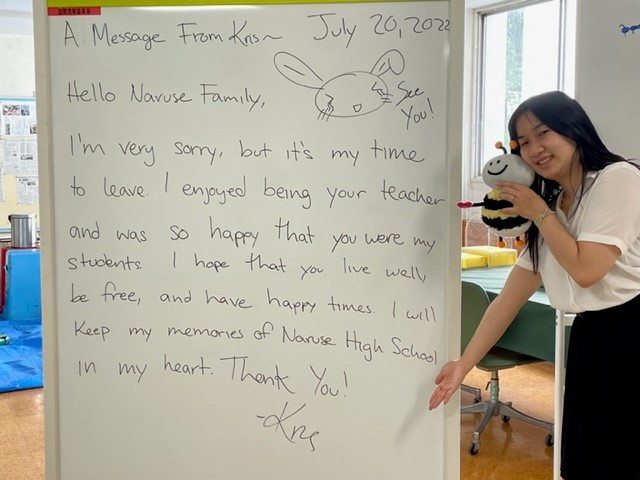 A Message From Kris~ July 20, 2022
See
You!
Hello Naruse Family,
I'm very sorry, but it's my time
to leave. I enjoyed being your teacher
and was so happy that you were my
students. I hope that you live well,
be free, and have happy times. I will
keep my memories of Naruse High School
in my heart. Thank You!
-Kris